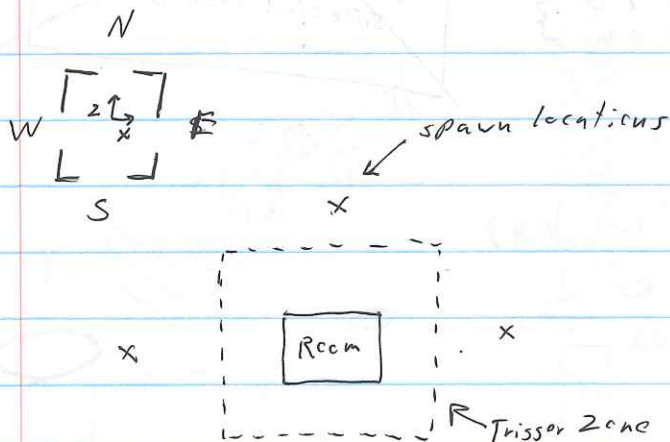 N
W
Z
X
E
spawn locations
S
X
X
Room
X
Trigger Zone